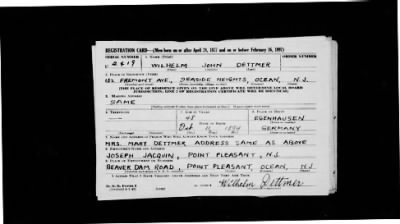 REGISTRATION CARD—(Men born on or after April 28, 1877 and on or before February 16, 1897)
SERIAL NUMBER 1. NAME (Print) ORDER NUMBER
U 2419 WILHELM JOHN DETTMER
2. PLACE OF RESIDENCE (Print)
FREMONT AVE, SEASIDE HEIGHTS, OCEAN, N.J.
[THE PLACE OF RESIDENCE GIVEN ON THE LINE ABOVE WILL DETERMINE LOCAL BOARD
JURISDICTION; LINE 2 OF REGISTRATION CERTIFICATE WILL BE IDENTICAL]
3. MAILING ADDRESS
SAME
4. TELEPHONE 5. AGE IN YEARS 6. PLACE OF BIRTH
48 EGENHAUSEN
DATE OF BIRTH
Oct 1894 GERMANY
7. NAME AND ADDRESS OF PERSON WHO WILL ALWAYS KNOW YOUR ADDRESS
MRS. MARY DETTMER ADDRESS SAME AS ABOVE
8. EMPLOYER'S NAME AND ADDRESS
JOSEPH JACQUIN, POINT PLEASANT, N.J.
9. PLACE OF EMPLOYMENT OR BUSINESS
BEAVER DAM ROAD, POINT PLEASANT, OCEAN, N.J.
I AFFIRM THAT I HAVE VERIFIED ABOVE ANSWERS AND THAT THEY ARE TRUE.
Wilhelm Dettmer